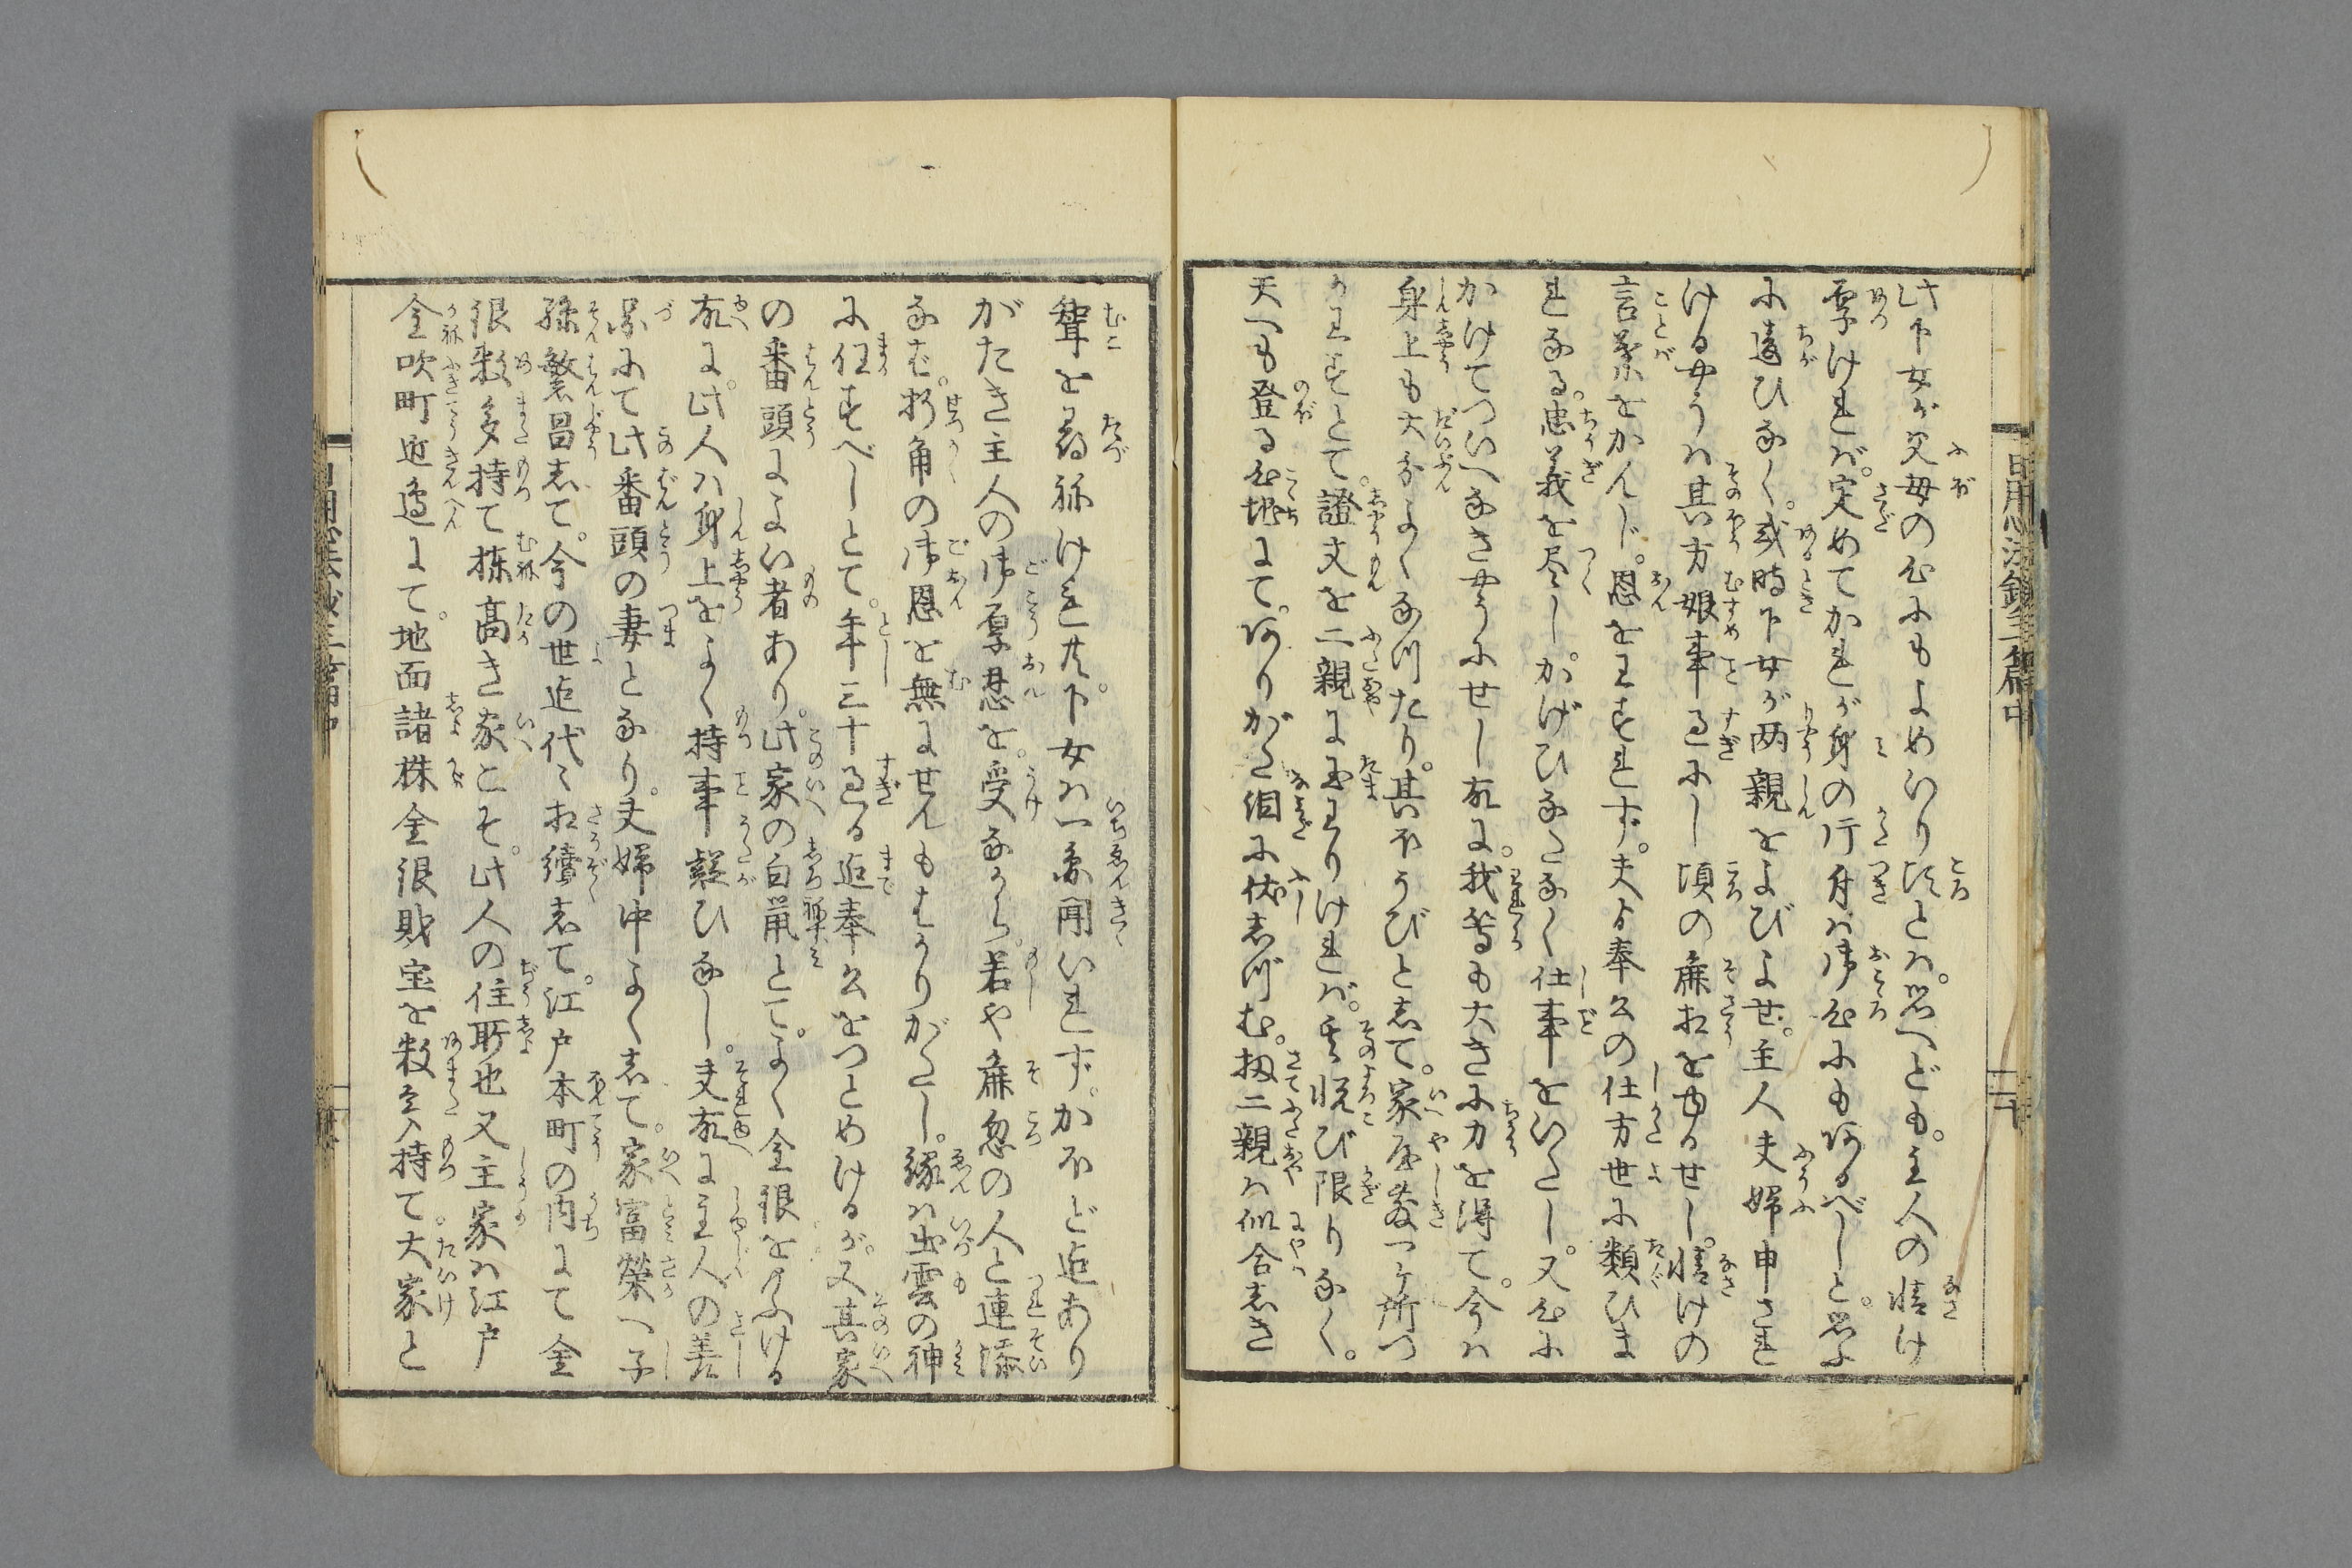 此下女が父母の心にもよめいり頃とは。思へども。主人の情け
厚ければ。定めてかれが身の片付は御心にも有るべしと。思ふ
に違ひなく。或時下女が両親をよびよせ。主人夫婦申され
けるやうは其方娘事過にし頃の麁相をゆるせし。情けの
言葉をかんじ。恩をわすれず。夫より奉公の仕方世に類ひま
れなる。忠義を尽しかげひなたなく仕事をいたし。又心に
かけてつひへなきやうにせし故に。我等も大きに力を得て。今は
身上も大分よくなりたり。其ほうびとして。家屋敷一ヶ所つ
かわすとて。證文を二親に玉わりければ。其悦び限りなく。
天へも登る心地にて。有りがた泪に伏しづむ。扨二親は似合しき
日用心法鈔三篇中
二十
聟を尋ねけれ共。下女は一向聞いれず。かほど迄あり
がたき主人の御厚恩を。受ながら。若や麁忽の人と連添
なば。折角の御恩を無にせんもはかりがたし。縁は出雲の神
に任すべしとて。年三十過る迄奉公をつとめけるが。又其家
の番頭によい者あり。此家の白鼠とて。よく金銀をふける
故に。此人は身上をよく持事疑ひなし。夫故に主人の差
図にて此番頭の妻となり。夫婦中よくして。家富榮へ子
孫繁昌して。今の世迄代々相續して。江戸本町の内にて金
銀数多持て棟高き家こそ。此人の住所也又主家は江戸
金吹町近邊にて。地面諸株金銀財宝を数多持て。大家と